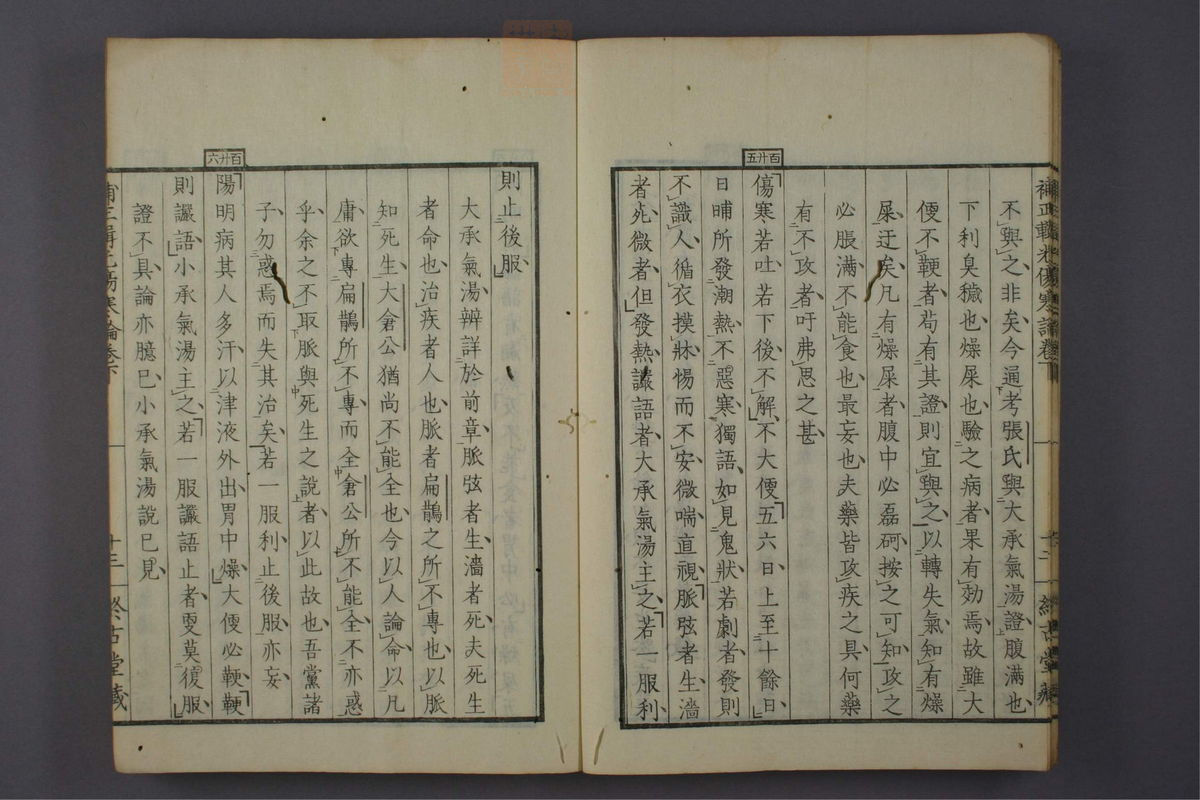 百廿五
不與之非矣今遍考張氏與大承氣湯證腹滿也
下利臭穢也燥屎也驗之病者果有効焉故雖大
便不鞕者苟有其證則宜與之以轉失氣知有燥
屎迂矣凡有燥屎者腹中必磊砢按之可知攻之
必脹滿不能食也最妄也夫藥皆攻疾之具何藥
有不攻者吁弗思之甚
傷寒若吐若下後不解不大便五六日上至十餘日
日晡所發潮熱不惡寒獨語如見鬼狀若劇者發則
不識人循衣摸牀惕而不安微喘直視脈弦者生濇
者死微者但發熱讝語者大承氣湯主之若一服利
百廿六
則止後服
大承氣湯辨詳於前章脈弦者生濇者死夫死生
者命也治疾者人也脈者扁鵲之所不專也以脈
知死生大倉公猶尚不能全也今以人論命以凡
庸欲專扁鵲所不專而全倉公所不能全不亦惑
乎余之不取脈與死生之說者以此故也吾黨諸
子勿惑焉而失其治矣若一服利止後服亦妄
陽明病其人多汗以津液外出胃中燥大便必鞕鞕
則讝語小承氣湯主之若一服讝語止者更莫復服
證不具論亦臆已小承氣湯說已見
十三